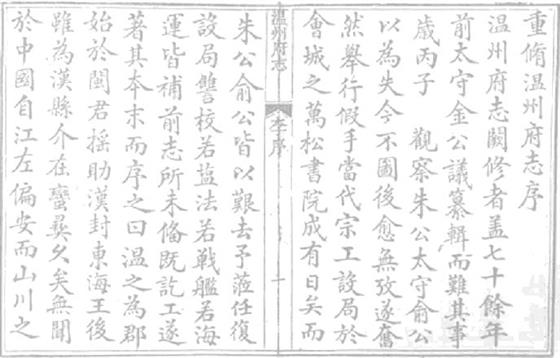 重脩溫州府志序
溫州府志闕修者葢七十餘年
前太守金公議纂輯而難其事
歲丙子　觀察朱公太守俞公
以為失今不圖後愈無攷遂奮
然舉行假手當代宗工設局於
會城之萬松書院成有日矣而
溫州府志
序
一
朱公俞公皆以艱去予蒞任復
設局讐校若盐法若戰艦若海
運皆補前志所未俻既訖工遂
著其本末而序之曰溫之為郡
始於閩君搖助漢封東海王後
雖為漢縣介在蠻彛久矣無聞
於中國自江左偏安而山川之